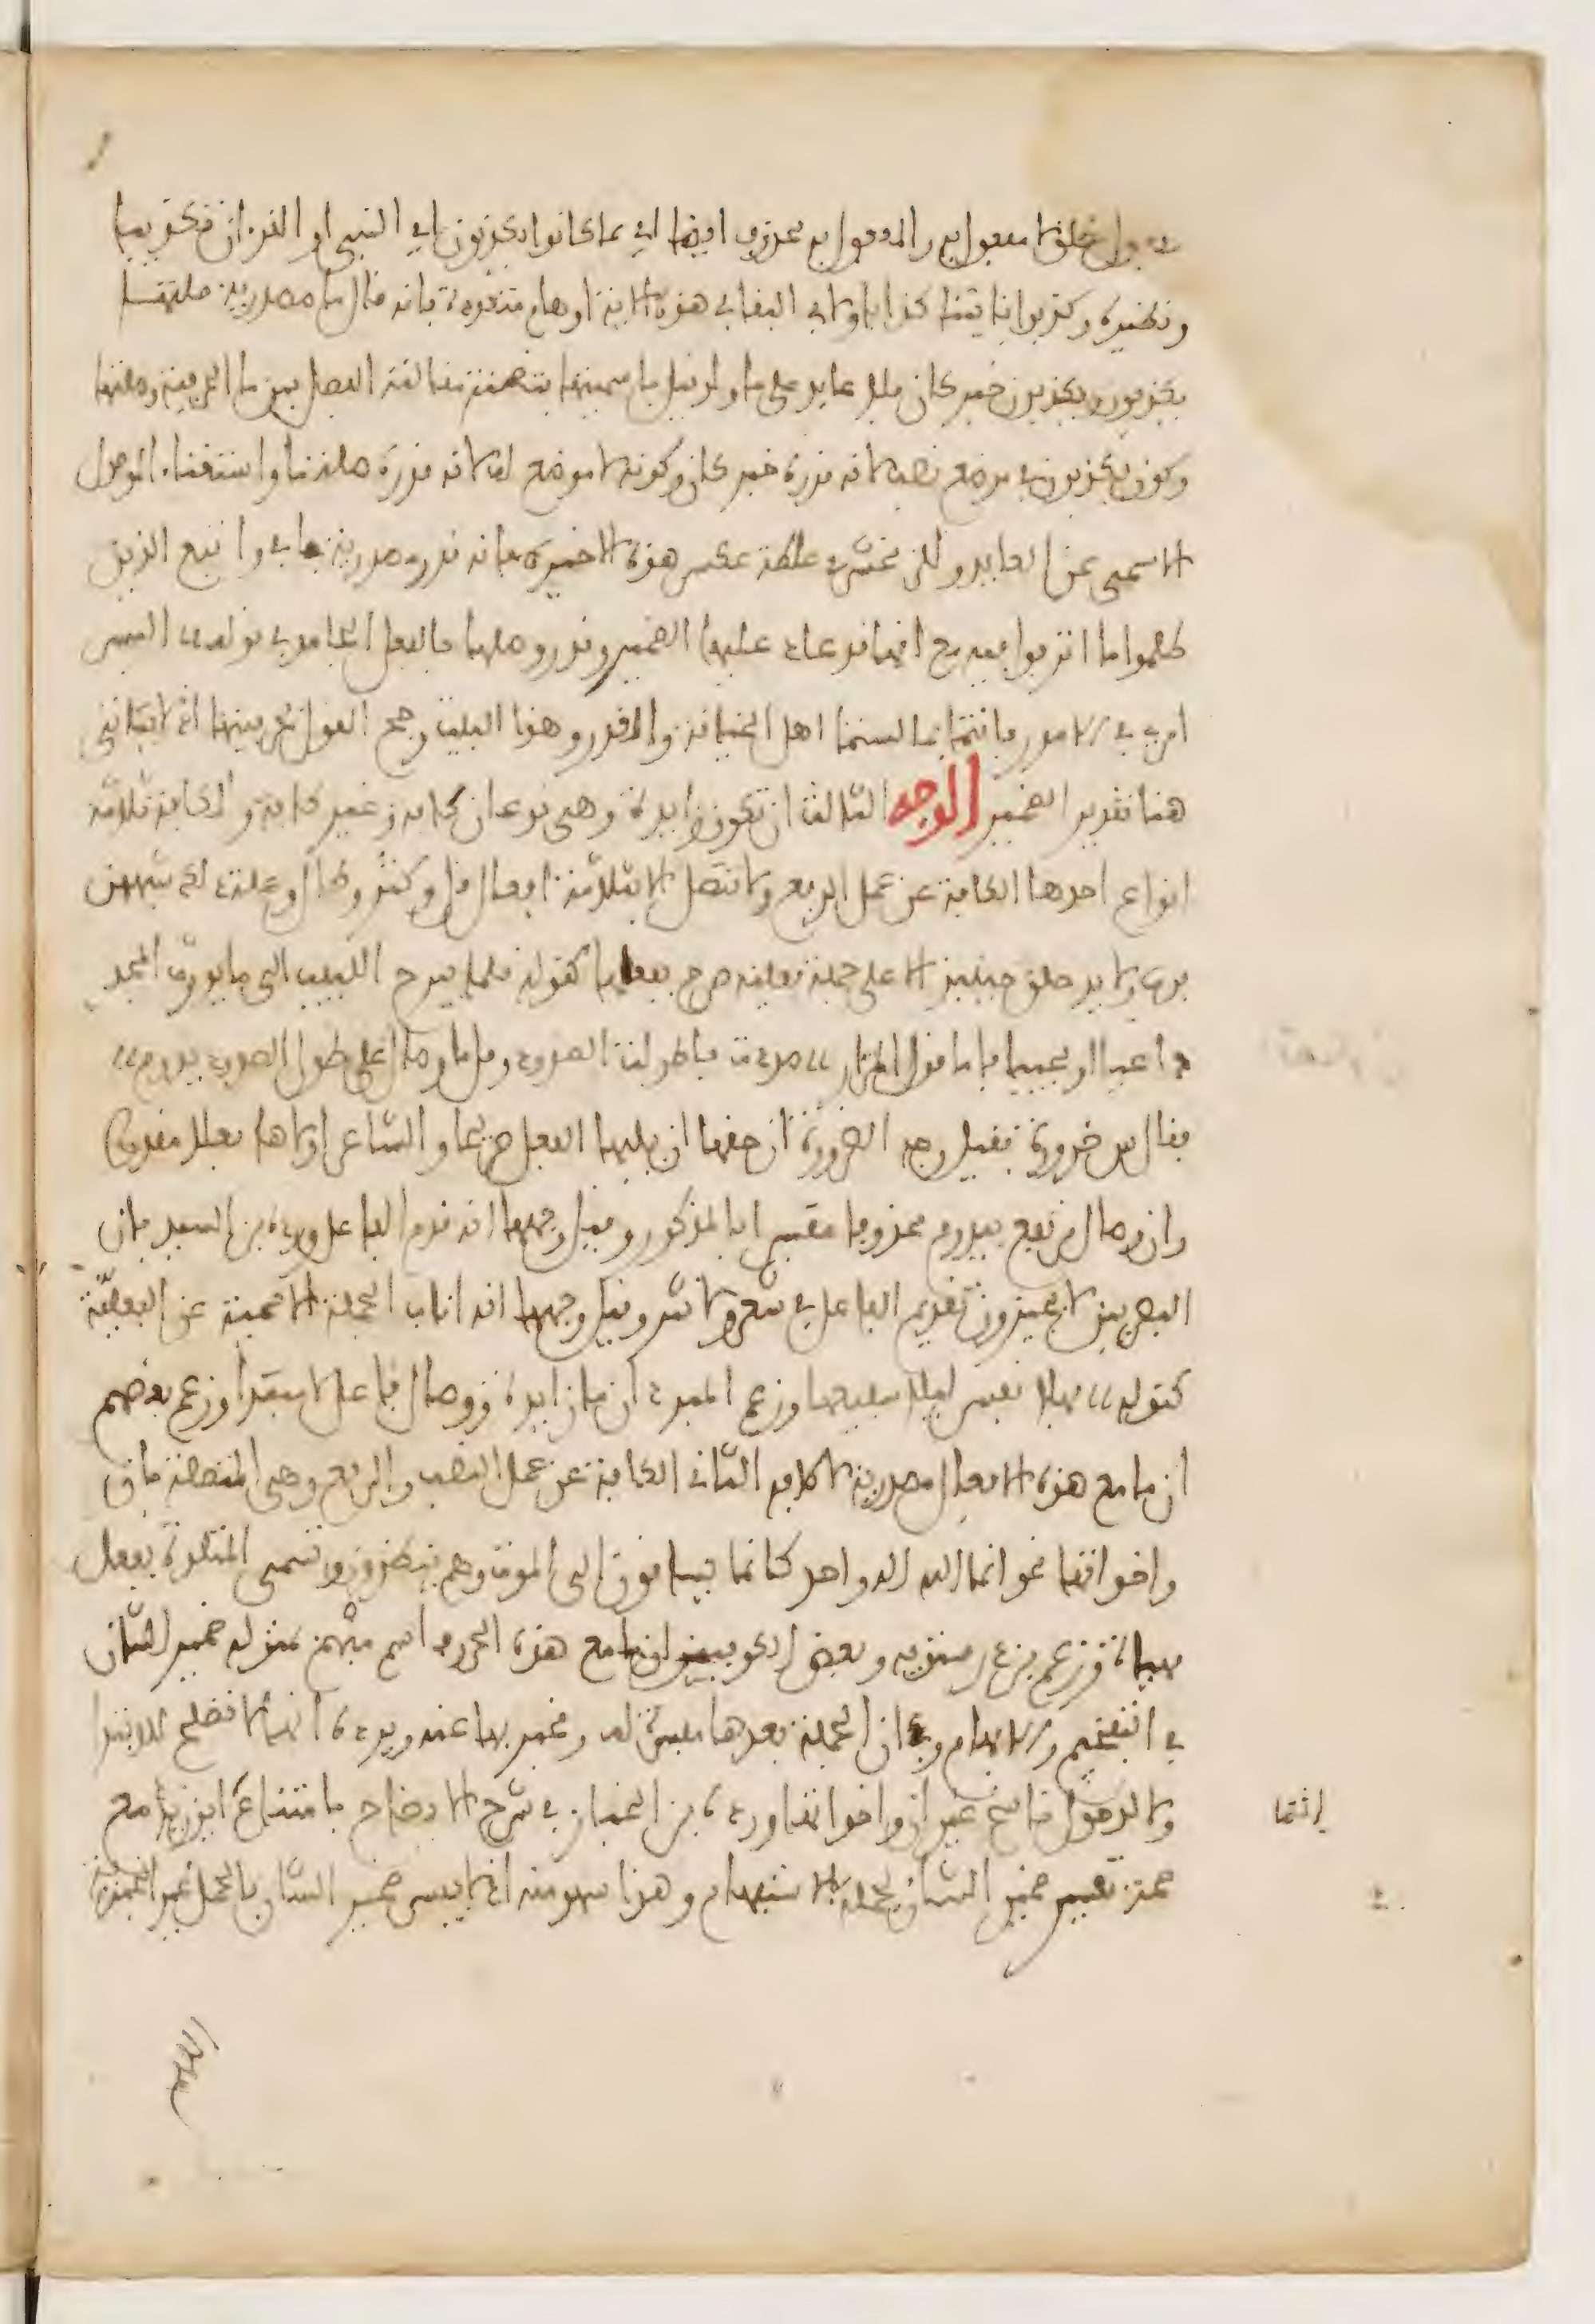 مفعول مطلق لا مفعول به والمفعول به محذوف ايضا اي بما كانوا يكذبون اي النبي او القرءان تكذيبا
ونظيره وكذبوا بئاياتنا كذابا ولابي البقا في هذه الاية اوهام متعددة فانه قال ما مصدرية صلتها
يكذبون ويكذبون خبر كان ولا عايد على ما ولو قيل باسميتها فتضمنت مقالته الفصل بين ما الحرفية وصلتها
وكون يكذبون في موضع نصب لانه قدره خبر كان وكونه لا موضع له لانه قدره صلة ما واستغناء الموصول
الاسمي عن العايد وللزمخشري غلطة عكس هذه الاخيرة فانه قدر مصدرية ما في واتبع الذين
ظلموا ما اترفوا فيه مع انه قد عاد عليها الضمير وندر وصلها بالفعل الجامد في قوله اليس
اميري في الامور بانتما بما لستما اهل الخيانة والغدر وهذا البيت رجح القول بحرفيتها اذ لا يتاتى
هنا تقدير الضمير الوجه الثالث ان تكون زايدة وهي نوعان كافة وغير كافة والكافة ثلاثة
انواع احدها الكافة عن عمل الرفع ولا تتصل الا بثلاثة افعال قل وكثر وطال وعلة ذلك شبههن
برب ولا يدخلن حينيذ الا على جملة فعلية صرح بفعلها كقوله قلما يبرح اللبيب الى ما يورث المجد
داعيا او مجيبا فاما قول المرار صددت فاطولت الصدود وقلما وصال على طول الصدود يدوم
فقال س ضرورة فقيل وجه الضرورة ان حقها ان يليها الفعل صريحا والشاعر اولاها فعلا مقدرا
وان وصال مرتفع بيدوم محذوفا مفسرا بالمذكور وقيل وجهها انه قدم الفاعل ورده بن السيد بان
البصريين لا يجيزون تقديم الفاعل في شعر ولا نثر وقيل وجهها انه اناب الجملة الاسمية عن الفعلية
كقوله فهلا نفس ليلى شفيعها وزعم المبرد ان ما زايدة ووصال فاعل لا مبتدا وزعم بعضهم
ان ما مع هذه الافعال مصدرية لا كافة الثاني الكافة عن عمل النصب والرفع وهي المتصلة بان
واخواتها نحو انما الله اله واحد كانما يساقون الى الموت وهم ينظرون وتسمى المتلوة بفعل
مهياة وزعم بن درستويه وبعض الكوفيين ان ما مع هذه الحروف اسم مبهم بمنزلة ضمير الشان
في التفخيم والابهام وفي ان الجملة بعدها مفسرة له ومخبر بها عنه ويرده انها لا تصلح للابتدا
ولا لدخول ناسخ غير ان واخواتها ورده بن الخباز في شرح الايضاح بامتناع اين زيد مع
صحة تفسير ضمير الشان بجملة الاستفهام وهذا سهو منه اذ لا يفسر ضمير الشان بالجمل غير الخبرية
انما
اللهم